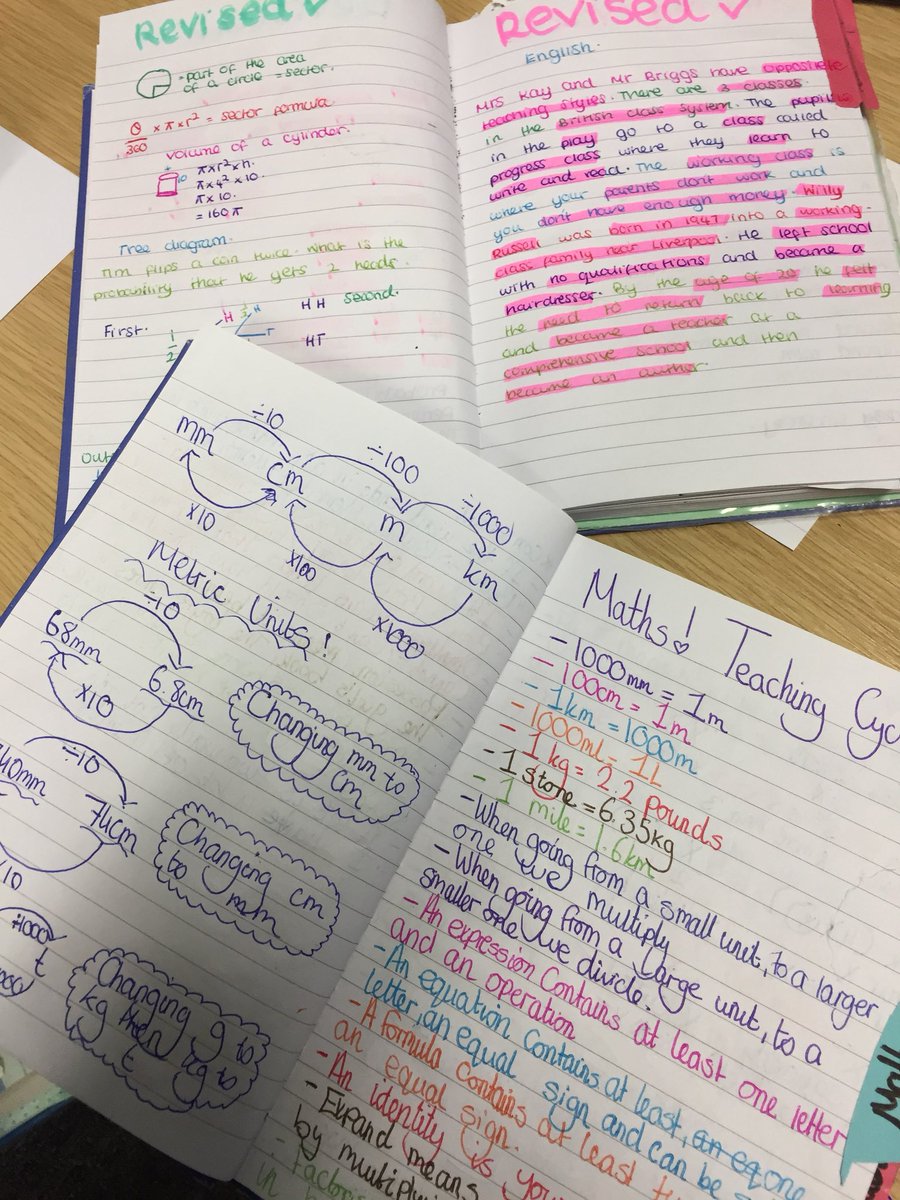 Revised ✓
- part of the area
of a circle = sector.
θ/360 × π × r² = sector formula
volume of a cylinder.
10
π×r²×h.
π×4²×10.
π×10.
= 160π
Tree diagram.
Tim flips a coin twice. What is the
probability that he gets 2 heads.
First.
H
H
HH second.
1/2
T
HT
Out
Revised ✓
English.
Mrs Kay and Mr Briggs have opposite
teaching styles. There are 3 classes
in the British class system. The pupils
in the play go to a class called
progress class where they learn to
write and read. The working class is
where your parents don't work and
you don't have enough money. Willy
Russell was born in 1947 into a working-
class family near Liverpool. He left school
with no qualifications and became a
hairdresser. By the age of 20 he felt
the need to return back to learning
and became a teacher at a
comprehensive school and then
became an author.
mm ÷10 cm ÷100 m ÷1000 km
×10 ×100 ×1000
Metric Units!
68mm ÷10 6.8cm
×10
Changing mm to
cm
÷10
40mm
74cm
Changing cm
to mm
÷1000
t
Changing g to
kg then kg to
t
Maths! Teaching Cyc
- 1000mm = 1m
- 100cm = 1m
- 1km = 1000m
- 1000ml = 1L
- 1 kg = 2.2 Pounds
- 1 stone = 6.35kg
- 1 mile = 1.6km
- When going from a small unit, to a larger
one we multiply
- When going from a large unit, to a
smaller one we divide.
- An expression Contains at least one letter
and an operation
- An equation Contains at least, one
letter, an equal sign and can be
- A formula Contains at least t
an equal sign.
- An identity is you
- Expand means
by multipl
- Factoris
in b